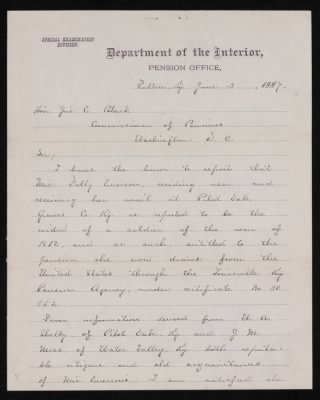 SPECIAL EXAMINATION
DIVISION.
Department of the Interior,
PENSION OFFICE,
Fulton, Ky June 3, 1887.
Hon Jno C. Black
Commissioner of Pensions
Washington. D. C.
Sir,
I have the honor to report that
Mrs Dolly residing near and
receiving her mail at Pilot Oak
Graves Co. Ky is reputed to be the
widow of a soldier of the war of
1812, and as such, entitled to the
pension she now draws from the
United States through the Louisville Ky
Pension Agency, under certificate No 30
552
From information derived from W. A.
Shelby of Pilot Oak. Ky and J. M.
of Water Valley, Ky both reputa-
ble citizens and old acquaintances
of Mrs I am satisfied she